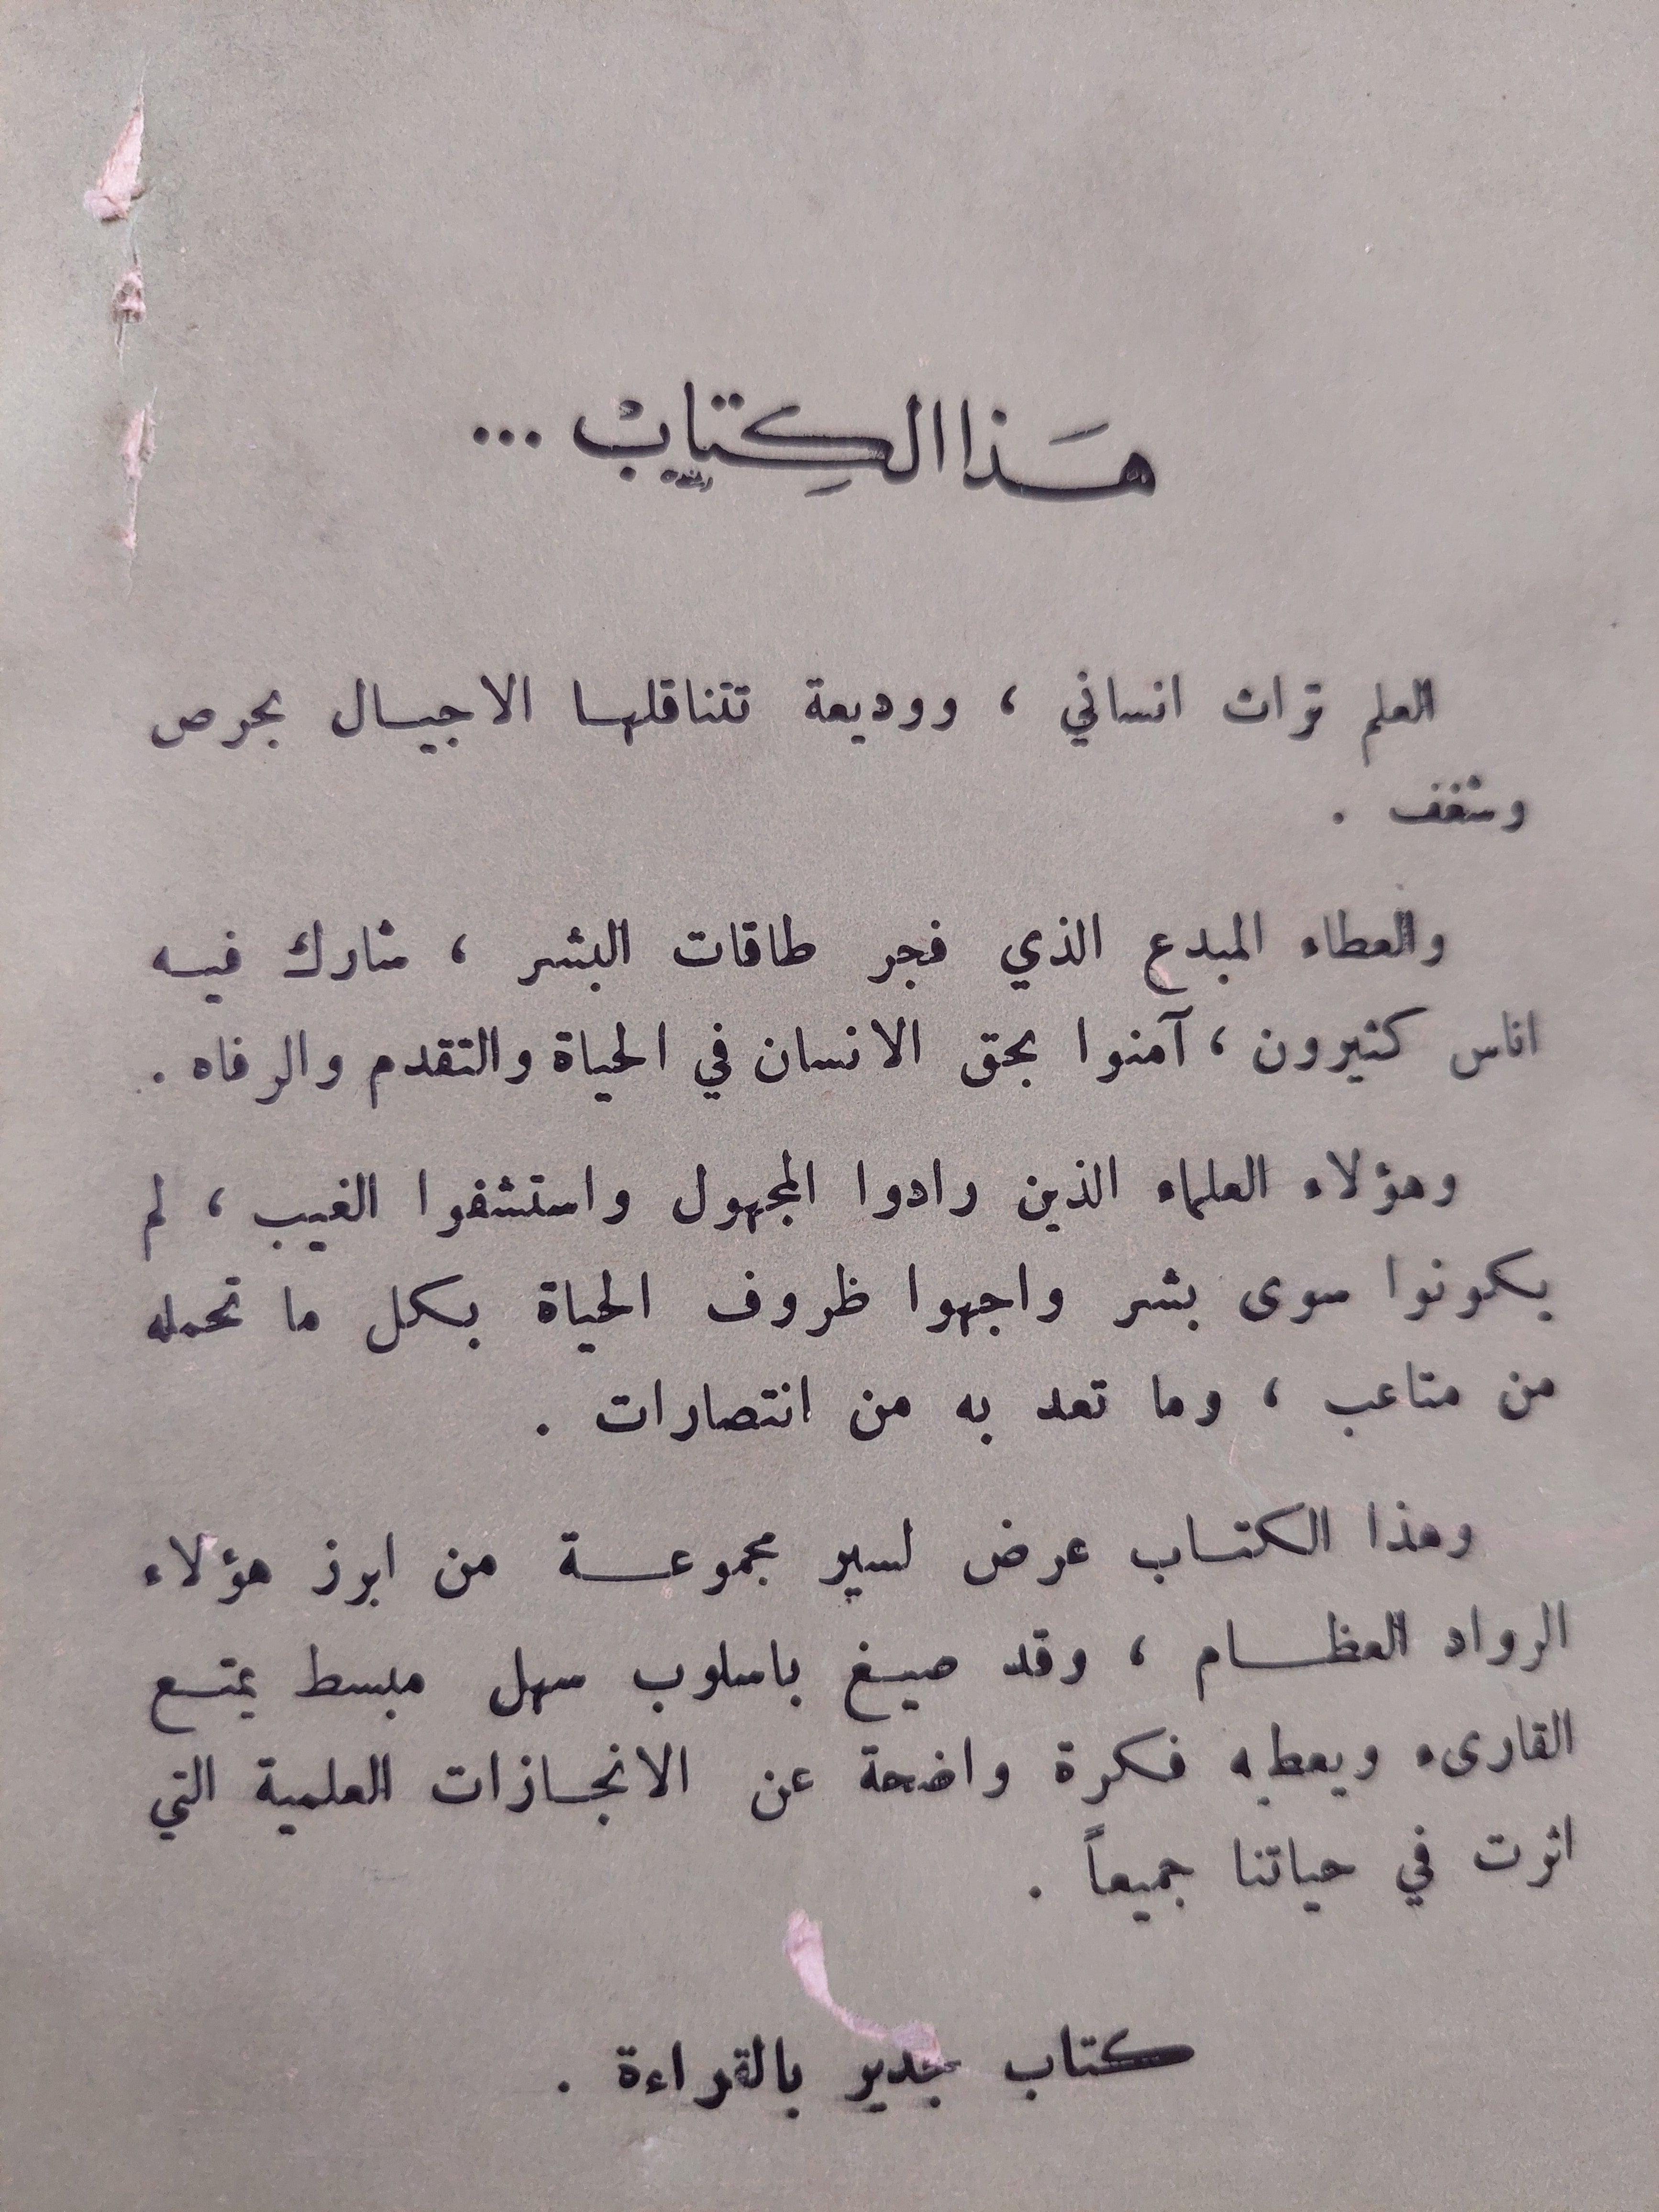 هَذا الكِتابْ ...
العلم تراث انساني ، ووديعة تتناقلها الاجيال بحرص
وشغف .
والعطاء المبدع الذي فجر طاقات البشر ، شارك فيه
اناس كثيرون ، آمنوا بحق الانسان في الحياة والتقدم والرفاه .
وهؤلاء العلماء الذين رادوا المجهول واستشفوا الغيب ، لم
يكونوا سوى بشر واجهوا ظروف الحياة بكل ما تحمله
من متاعب ، وما تعد به من انتصارات .
وهذا الكتاب عرض لسير مجموعة من ابرز هؤلاء
الرواد العظام ، وقد صيغ باسلوب سهل مبسط يمتع
القارىء ويعطيه فكرة واضحة عن الانجازات العلمية التي
اثرت في حياتنا جميعاً .
كتاب جدير بالقراءة .